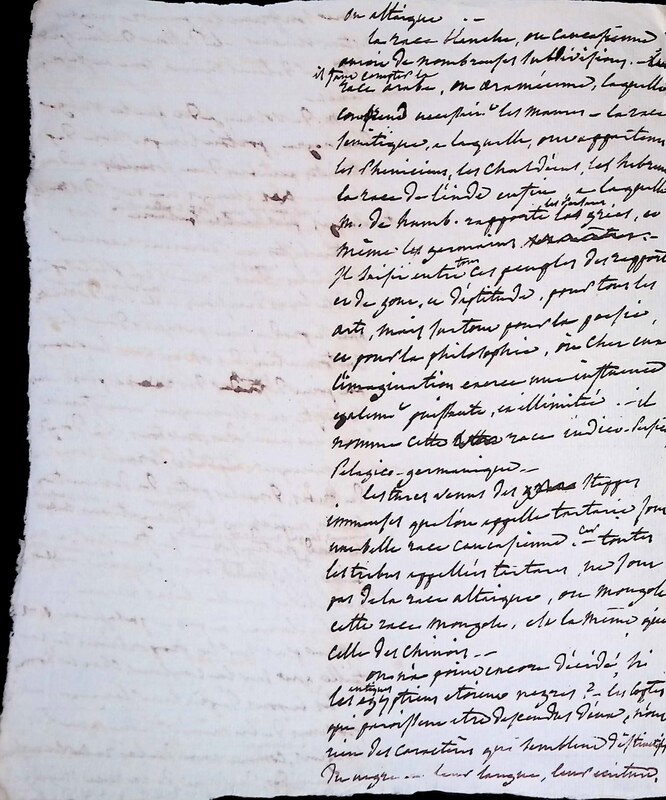 ou altaïque --
la race blanche, ou caucasienne
de nombreuses subdivisions. -
il faut compter la
race arabe, ou araméenne, laquelle
comprend les maures - la race
sémitique, a laquelle, on
les Phéniciens, les Chaldéens, les hébreux
la race de l'inde enfin, a laquelle
m. de humb. rapporte les grecs, et
même les germains
Il saisit entre tous ces peuples des rapports
et de gout, et d'aptitude, pour tous les
arts, mais surtout pour la poésie,
et pour la philosophie, ou chez eux
l'imagination exerce une influence
egalemt puissante, et illimitée. - il
nomme cette race indico-
Pelagico-germanique. -
les turcs venus des steppes
immenses que l'on appelle tartarie sont
une belle race caucasienne. - car toutes
les tribus appellées tartares, ne sont
pas de la race altaïque, ou mongole
cette race mongole, est la même que
celle des chinois. -
on n'a point encore décidé, si
les antiques egyptiens etoient negres ? - les coptes
qui paroissent etre descendus d'eux, n'ont
rien des caractères qui semblent
du negre -- leur langue, leur écriture,